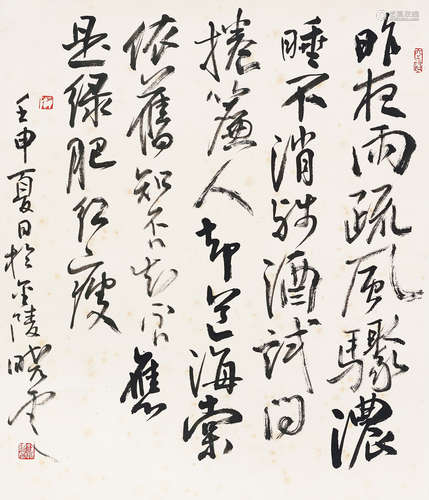 昨夜雨疏风驟濃
睡不消残酒试问
捲簾人却道海棠
依舊知否知否應
是绿肥红瘦
壬申夏日於金陵晓云